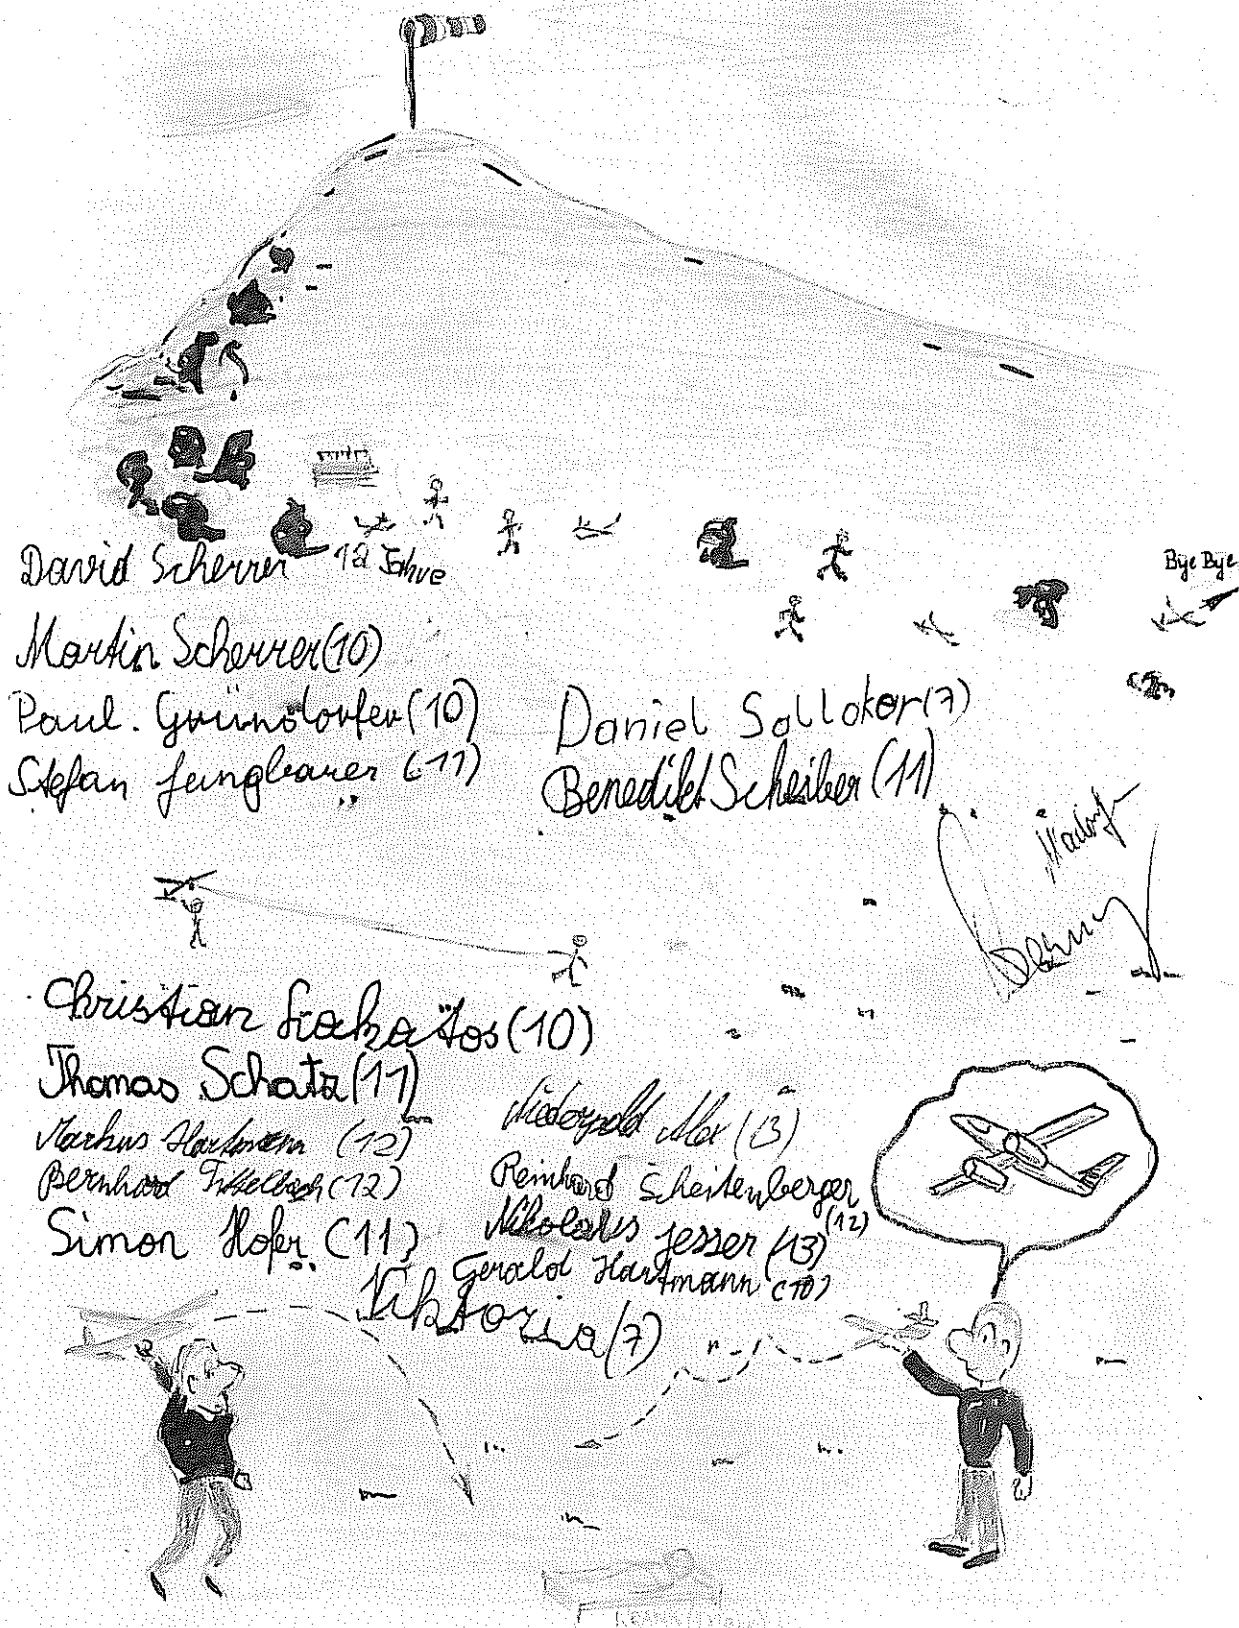 David Scherrer 12 Jahre
Bye Bye
Martin Scherrer (10)
Paul. Gründorfer (10)
Stefan Jungbauer (11)
Daniel Sollokor (7)
Benedikt Scheiber (11)
Christian Lakatos (10)
Thomas Schatz (11)
Markus Hartmann (12)
Bernhard (12)
Simon Hofer (11)
Alex (13)
Reinhard Scheitenberger
(12)
Nikolaus Jesser (13)
Gerald Hartmann (10)
Viktoria (7)